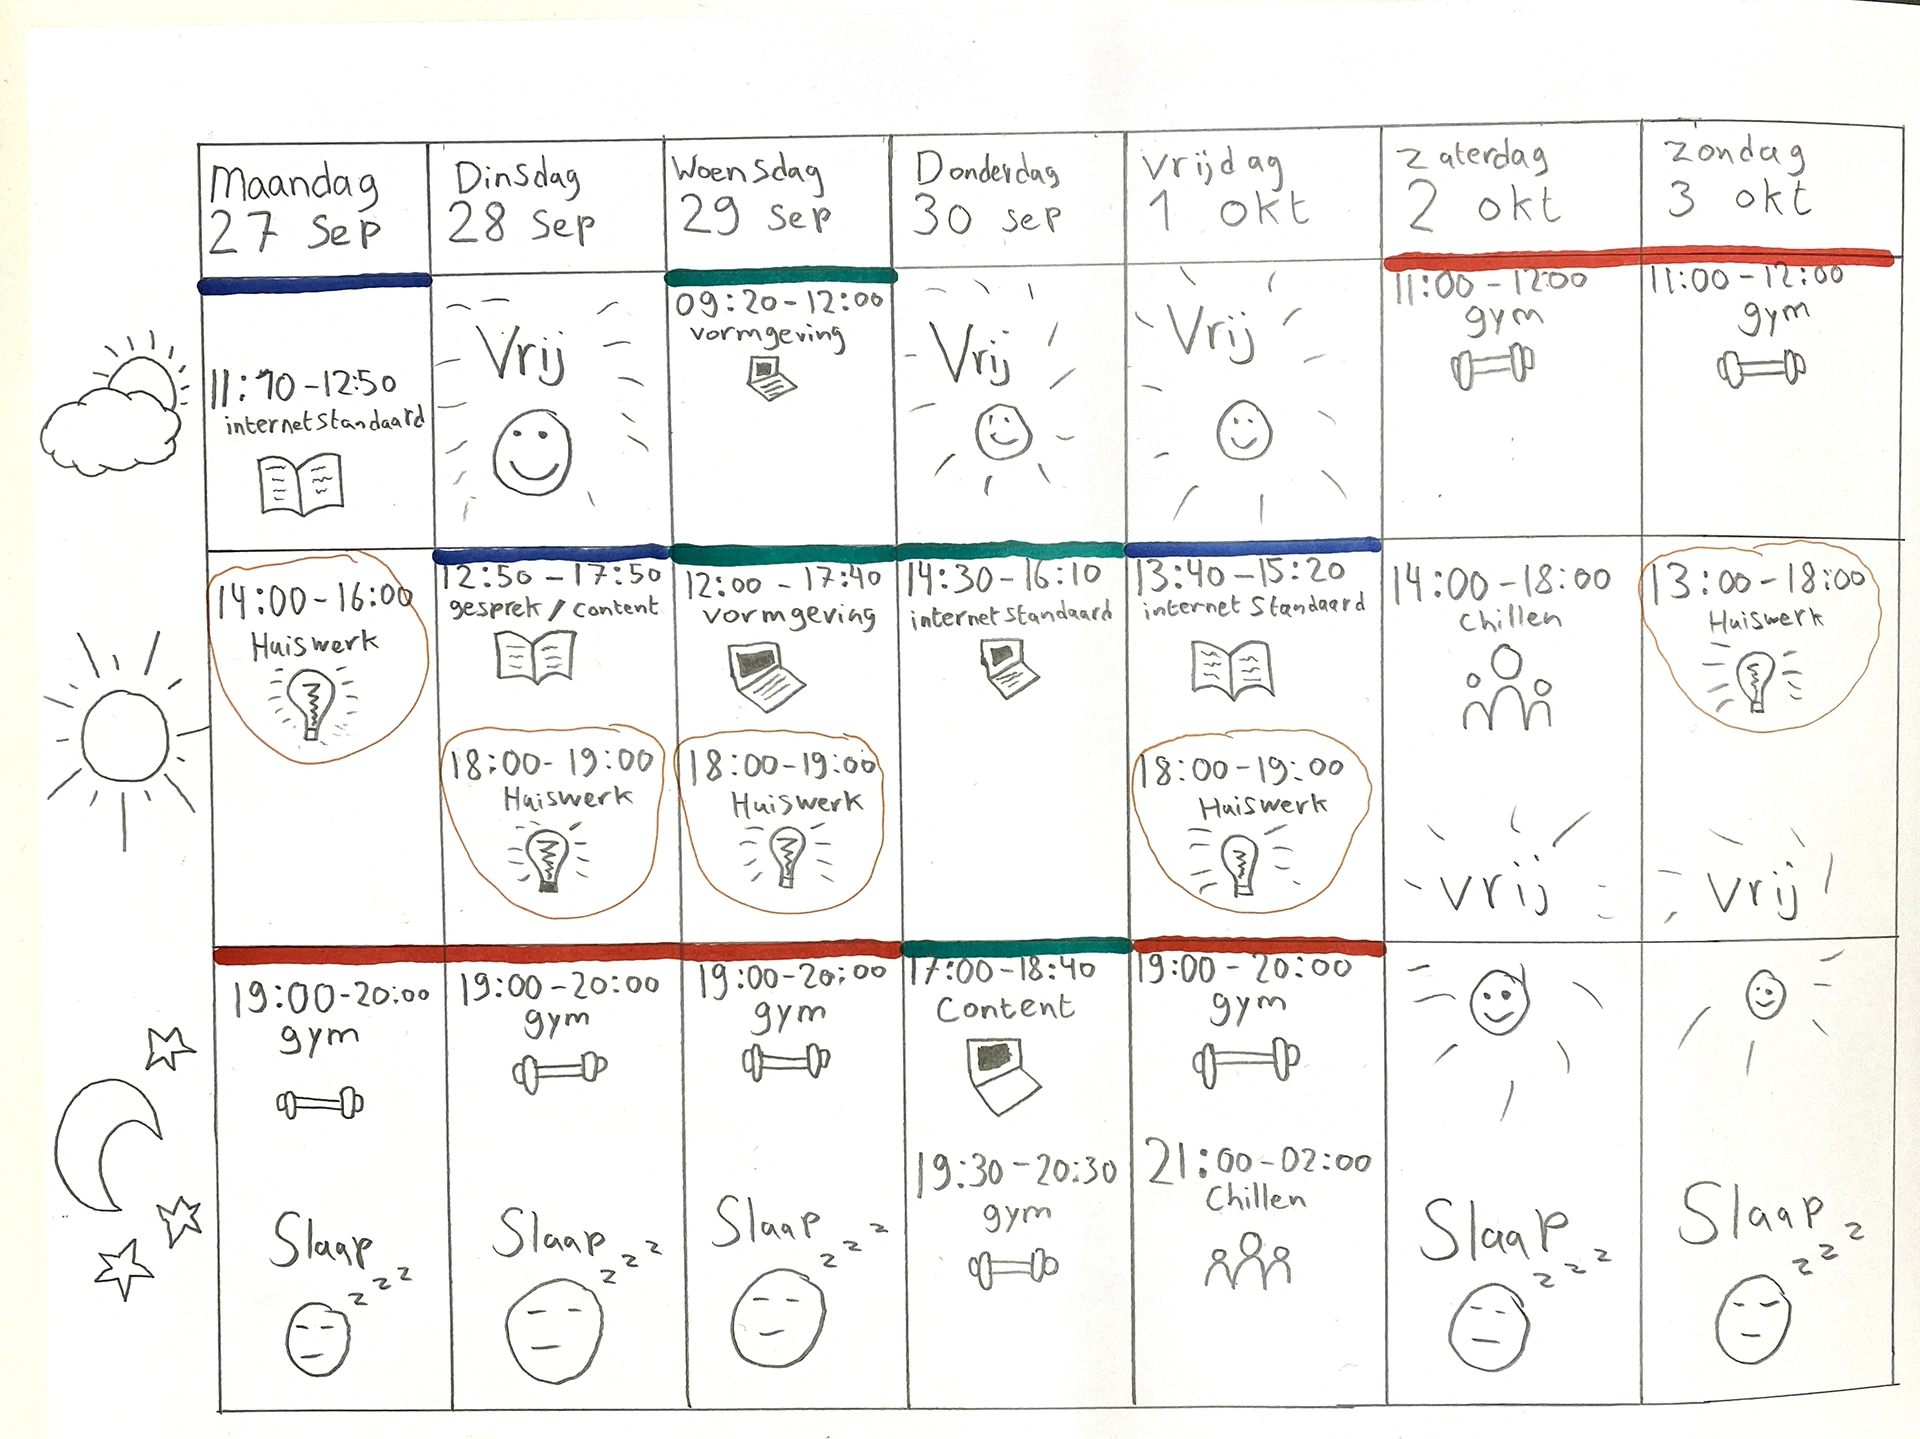 Maandag
27 Sep
Dinsdag
28 Sep
Woensdag
29 Sep
Donderdag
30 sep
Vrijdag
1 okt
Zaterdag
2 okt
Zondag
3 okt
11:10-12:50
internetstandaard
Vrij
09:20-12:00
vormgeving
Vrij
Vrij
11:00-12:00
gym
11:00-12:00
gym
14:00-16:00
Huiswerk
12:50-17:50
gesprek/content
18:00-19:00
Huiswerk
12:00-17:40
vormgeving
18:00-19:00
Huiswerk
14:30-16:10
internetstandaard
13:40-15:20
internet Standaard
18:00-19:00
Huiswerk
14:00-18:00
Chillen
vrij
13:00-18:00
Huiswerk
vrij
19:00-20:00
gym
Slaap
z z z
19:00-20:00
gym
Slaap
z z z
19:00-20:00
gym
Slaap
z z z
17:00-18:40
Content
19:30-20:30
gym
19:00-20:00
gym
21:00-02:00
Chillen
Slaap
z z z
Slaap
z z z